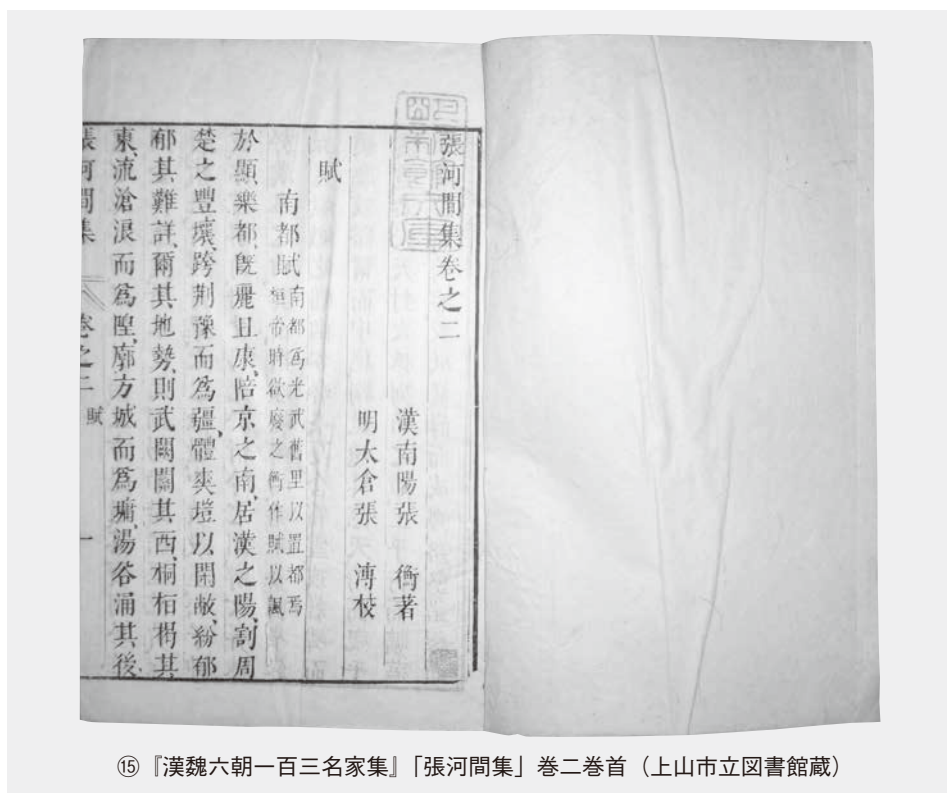 張河間集卷之二
漢南陽張　衡著
明太倉張　溥校
賦
南都賦南都為光武舊里以置都焉
桓帝時欲廢之衡作賦以諷
於顯樂都、旣麗且康、陪京之南、居漢之陽、割周
楚之豐壤、跨荆豫而為疆、體爽塏以閑敞、紛郁
郁其難詳、爾其地勢、則武闕關其西、桐栢揭其
東、流滄浪而為隍、廓方城而為墉、湯谷涌其後
張河間集　卷之二　賦　一
⑮『漢魏六朝一百三名家集』「張河間集」巻二巻首（上山市立図書館蔵）